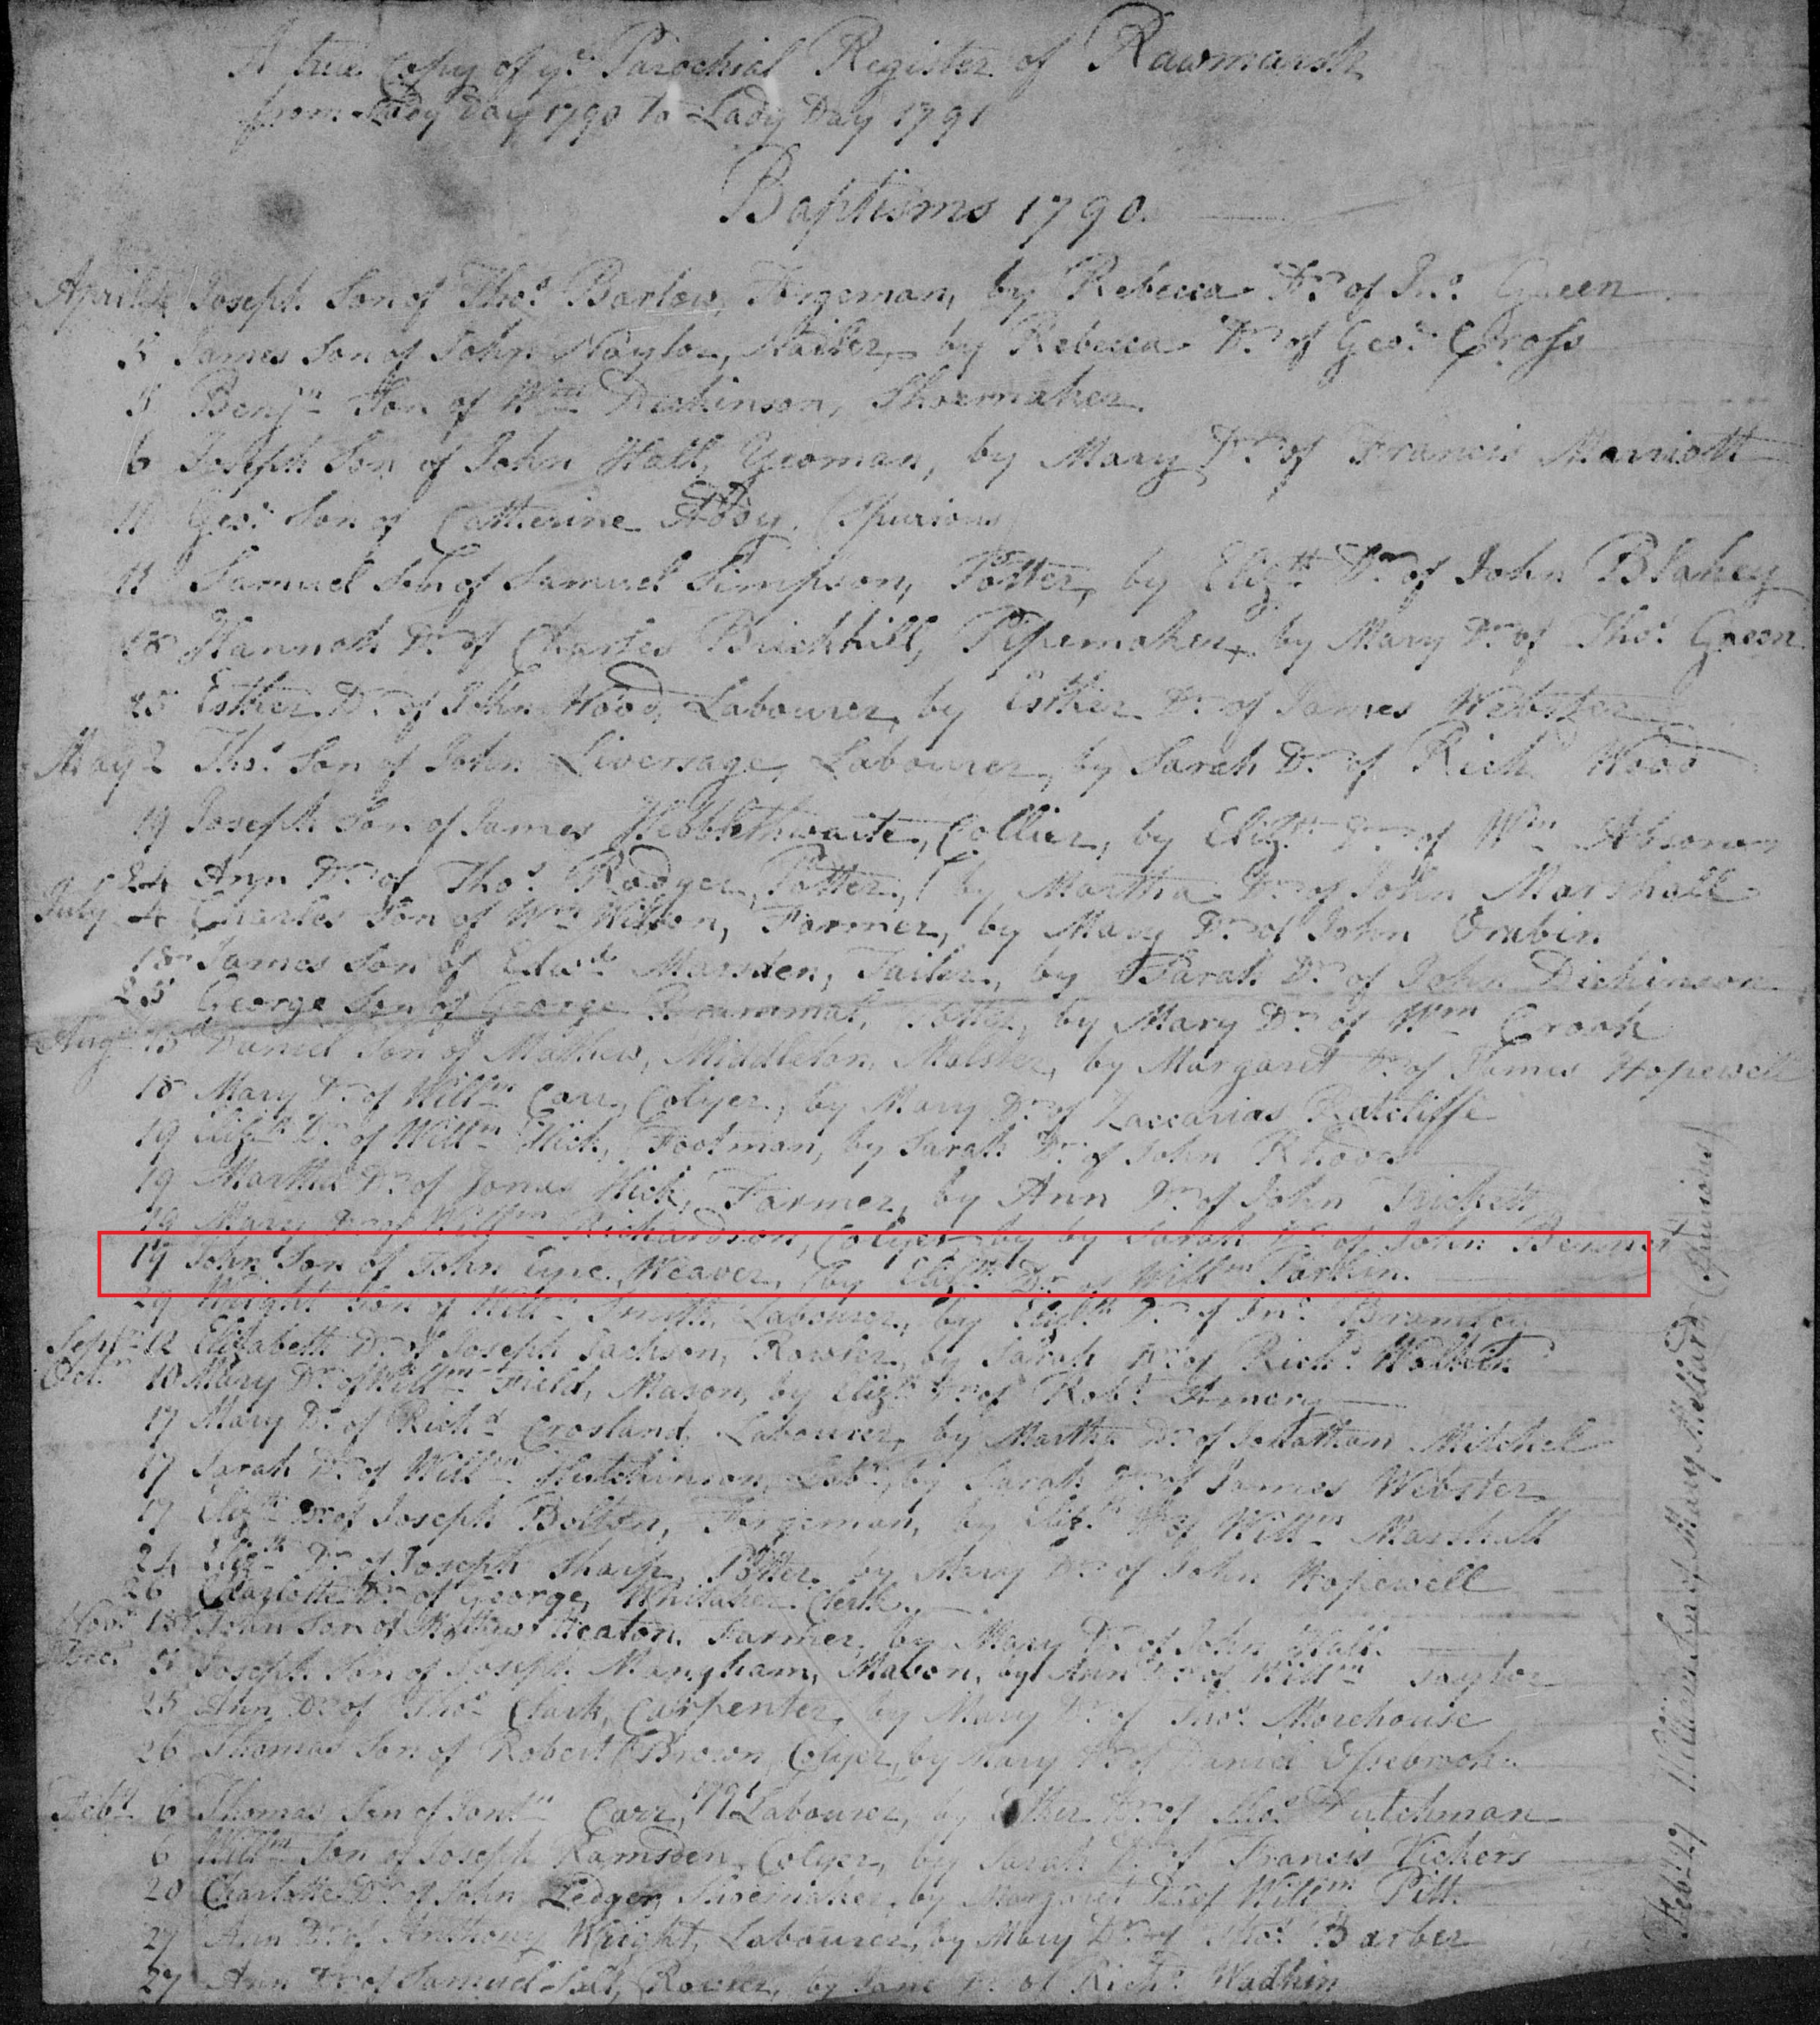 A true Copy of ye Parochial Register of Rawmarsh
from Lady Day 1790 to Lady Day 1791
Baptisms 1790.
April Joseph Son of Thos. Barlow, Forgeman, by Rebecca Dr. of Jno. Green
5 James Son of John Naylor, Nailer, by Rebecca Dr. of Geo. Cross
5 Benjn Son of Wm Dickinson, Shoemaker.
6 Joseph Son of John Hall, Yeoman, by Mary Dr. of Francis Marriott
11 Geo. Son of Catherine (Spurious)
11 Samuel Son of Samuel Simpson, Potter, by Elizth Dr. of John Blakey
18 Hannah Dr. of Charles Brickhill, Pipemaker, by Mary Dr. of Thos. Green
25 Esther Dr. of John Wood, Labourer, by Esther Dr. of James Webster
May 2 Thos. Son of John Liversage, Labourer, by Sarah Dr. of Richd Wood
19 Joseph Son of James Hebblethwaite, Collier, by Elizth Dr. of Wm Abson
24 Ann Dr. of Thos. Rodger, Potter, by Martha Dr. of John Marshall
July 4 Charles Son of Wm Wilson, Farmer, by Mary Dr. of John
18 James Son of Edwd. Marsden, Tailer, by Sarah Dr. of John Dickinson
25 George Son of George Potter, by Mary Dr. of Wm Crook
Augt 15 Daniel Son of Mathew, Middleton, Malster, by Margaret Dr. of James Hopewell
18 Mary Dr. of Willm Carr, Colyer, by Mary Dr. of Zaccarias Ratcliffe
19 Elizth Dr. of Willm Hick, Footman, by Sarah Dr. of John Rhodes
19 Martha Dr. of Jonas Hick, Farmer, by Ann Dr. of John Trickett
19 Mary Dr. of Willm Richardson, Colyer by by Sarah Dr. of John
19 John Son of John Eyre, Weaver, by Elizth Dr. of Willm Parkin.
29 Wright Son of Willm Smith, Labourer, by Elizth Dr. of Jno. Bramley
Septr 12 Elizabeth Dr. of Joseph Jackson, by Sarah Dr. of Richd.
Octr 10 Mary Dr. of Willm Field, Mason, by Elizth Dr. of Robt. Amery
17 Mary Dr. of Richd Crosland, Labourer, by Martha Dr. of Jonathan Mitchell
17 Sarah Dr. of Willm Hutchinson, Labr, by Sarah Dr. of James Webster
17 Elizth Dr. of Joseph Bolton, Forgeman, by Elizth Dr. of Willm Marshall
24 Elizth Dr. of Joseph Sharp, Potter, by Mary Dr. of John Hopewell
26 Charlotte Dr. of George Whitaker Clerk.
Novr 18 John Son of Mathew Heaton, Farmer, by Mary Dr. of John Hall.
Decr 5 Joseph Son of Joseph Mangham, Mason, by Ann Dr. of Willm Taylor
25 Ann Dr. of Thos. Clark, Carpenter, by Mary Dr. of Thos. Morehouse
26 Thomas Son of Robert Brown, Colyer, by Mary Dr. of Daniel
1791
Feby 6 Thomas Son of Jonn Carr, Labourer, by Esther Dr. of Thos. Dutchman
6 Willm Son of Joseph Ramsden, Colyer, by Sarah Dr. of Francis Vickers
20 Charlotte Dr. of John Ledger, Shoemaker, by Margaret Dr. of Willm Pitt.
27 Ann Dr. of Anthony Wright, Labourer, by Mary Dr. of Thos. Barber
27 Ann Dr. of Samuel by Jane Dr. of Richd. Wadkin
Feb. 27 William Son of Mary (Spurious)